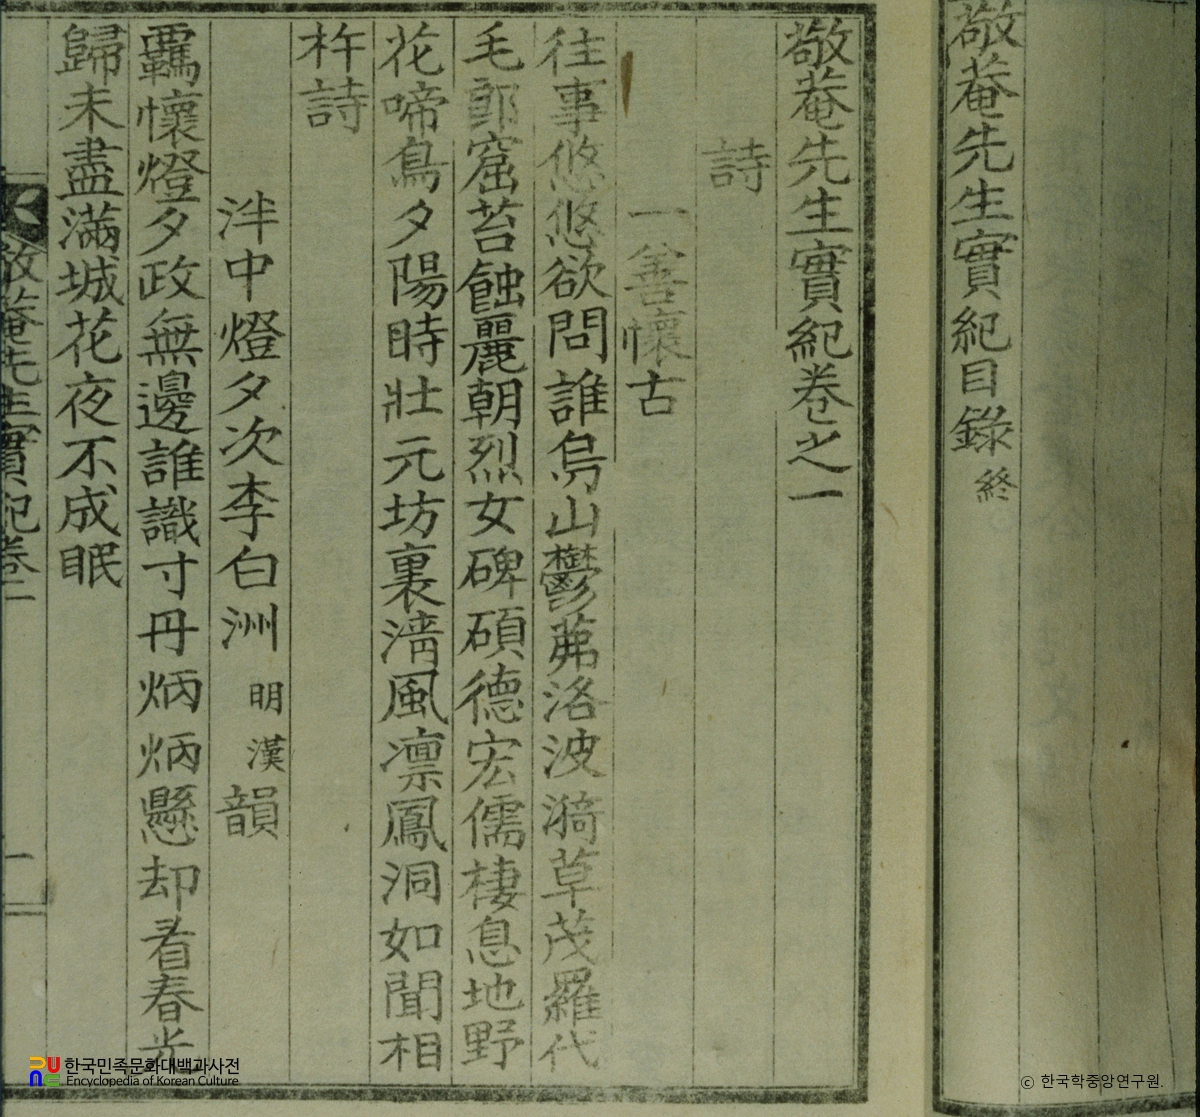 敬菴先生實紀目錄 終
敬菴先生實紀卷之一
詩
一善懷古
往事悠悠欲問誰烏山鬱茀洛波漪草茂羅代
毛郎窟苔蝕麗朝烈女碑碩德宏儒棲息地野
花啼鳥夕陽時壯元坊裏淸風凛鳳洞如聞相
杵詩
泮中燈夕次李白洲 明漢 韻
羈懷燈夕政無邊誰識寸丹炳炳懸却看春光
歸未盡滿城花夜不成眠
敬菴先生實紀卷一
一
한국민족문화대백과사전
Encyclopedia of Korean Culture
© 한국학중앙연구원.